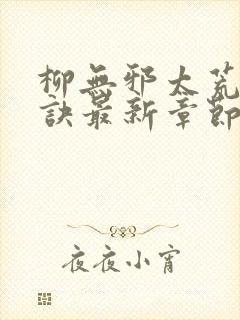 柳無邪太荒
訣最新章節
夜夜小宵